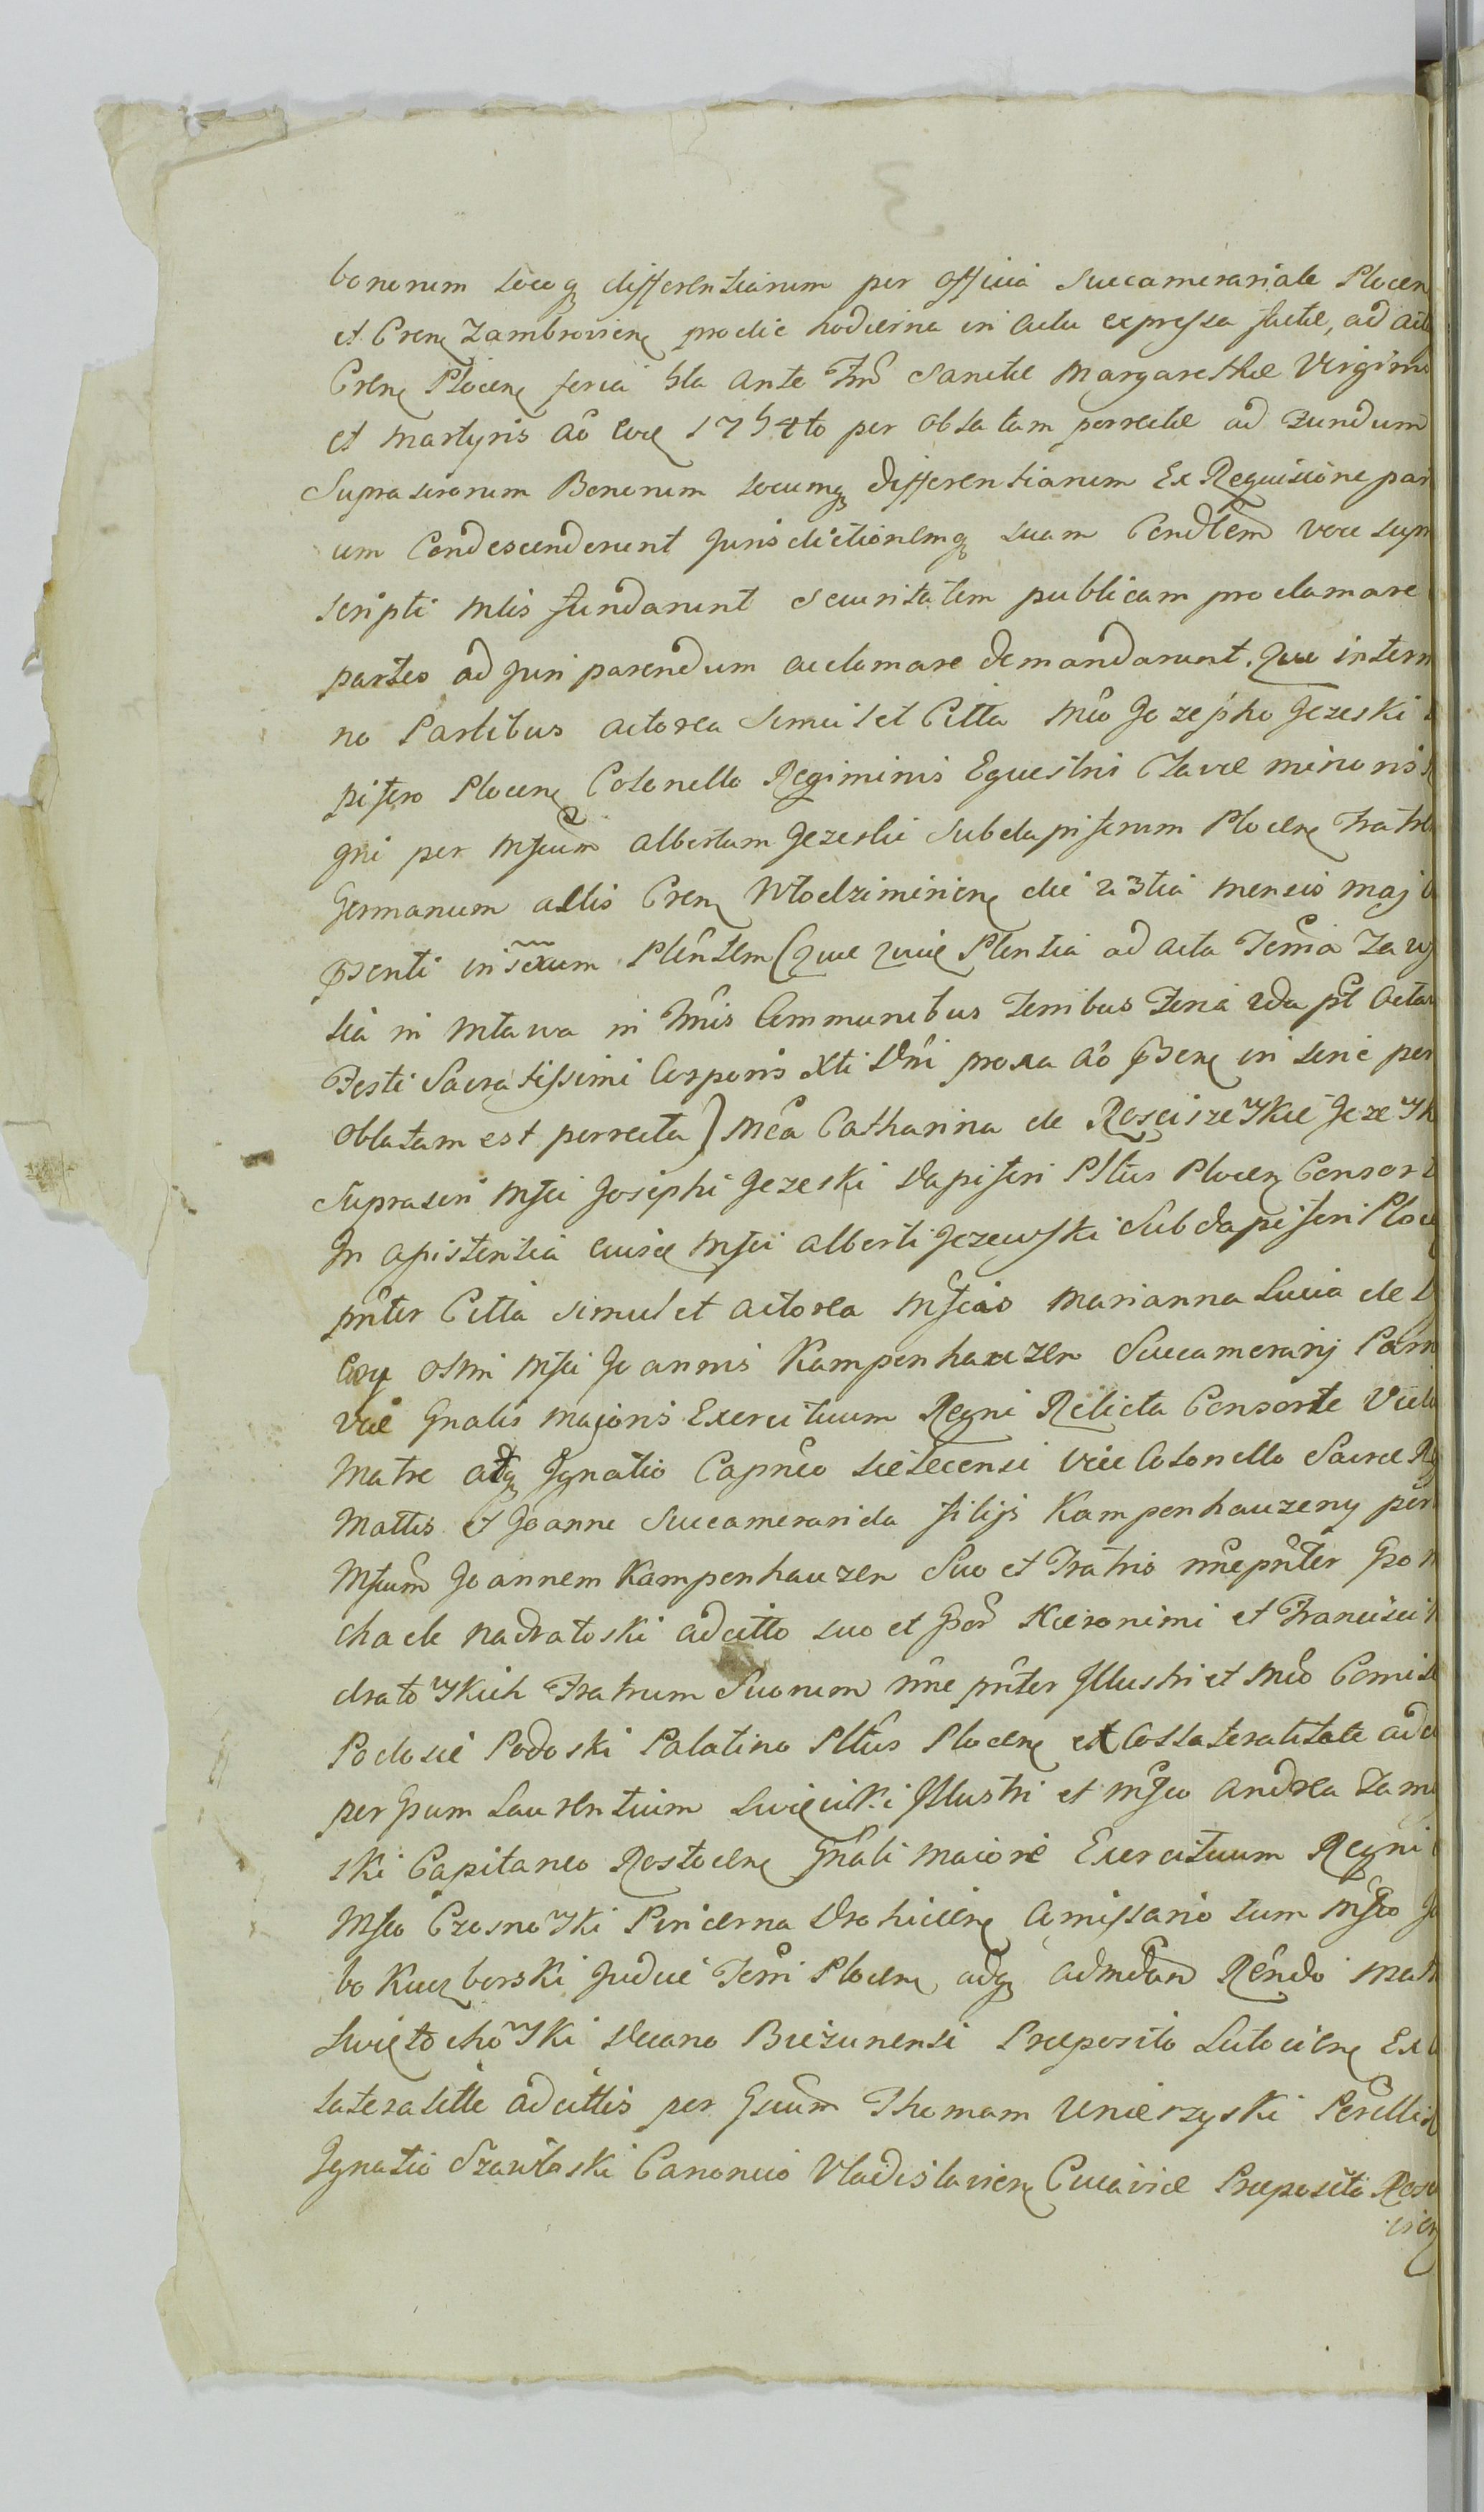 bonorum locoq differentiarum per officia Succamerariale Plocen
et Cren Zambrovien prodie hodierna in actu expressa factae, ad acta
Cren Plocen feria 5ta ante Fm̃ Sanctae Margarethae Virginis
et Martyris ao̊ eoe 1754to per oblatam porrectae ad Fundum
Suprascrorum Bonorum locumq differentiarum Ex Requisicione par
um Condescenderunt Jurisdictionemq suam Cendlem voce supra
scripti Mlis fundarunt securitatem publicam proclamare
partes ad juri parendum acclamare demandarunt. Quo intern
no Partibus actorea simul et Citta Mco Jozepho Jezeski
pifero Plocen Colonello Regiminis Equestris Clavae minoris
gni per Mfcum Albertum Jezeski Subdapiferum Plocen Fratre
Germanum actis Cren Włodzimirien die 23tia mensis Maj
psenti insertum Plentem (quae quae Plentia ad acta Terria Zaw
tia in Mława in Tmis Communibus Terribus Feria 2da pt Octav
Festi Sacratissimi Corporis Xti Dni proxa ao̊ psen in serie per
oblatam est porrecta) Mca Catharina de Rosciszewskie Jezewsk
Suprascri Mfci Josephi Jezeski Dapiferi Pltus Plocen Consort
In assistentia eiusdem Mfci Alberti Jezewski Subdapiferi Ploce
pnter Citta simul et actorea Mfcais Marianna Lucia de
olim Mfci Joannis Kampenhauzen Succamerarij Parn
viae Gnalis majoris Exercituum Regni Relicta Consorte Vidu
Matre atq Ignatio Capneo Vice Colonello Sacrae R
Mattis et Joanne Succamerarida filijs Kampenhauzeny per
Mfcum Joannem Kampenhauzen Suo et Fratris nñe pnter Gso
cha de Nadratoski adcitto suo et Gsor Hieronimi et Francisci
dratowskich Fratrum Suorum nñe pnter Illustri et Mco Comite
Podosie Podoski Palatino Pltus Plocen et Collateralitate adci
per Gsum Laurentium Swięcicki Illustri et Mfco Andrea Zamo
ski Capitaneo Rostocen Gnali maiore Exercituum Regni
Mfco Czosnowski Pincerna Drohicien Comissario tum Mfco J
bo Kuczborski Judice Terri Plocen adq admdum Rendo Math
Swiętochowski Decano Biezunensi Praeposito Lutocien Ex
lateralitte adcittis per Gsum Thomam Unierzyski Perillis
Ignatio Szawłoski Canonico Vladislavien Cuiaviae Praeposito Rosc
isien